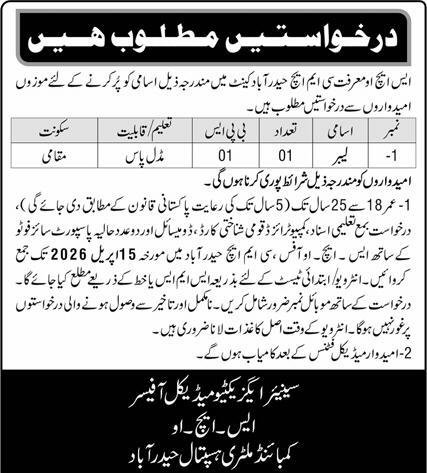 درخواستیں مطلوب ہیں
ایس ایچ او معرفت سی ایم ایچ حیدرآباد کینٹ میں مندرجہ ذیل اسامی کو پُر کرنے کے لئے موزوں
امیدواروں سے درخواستیں مطلوب ہیں۔
نمبر اسامی تعداد بی پی ایس تعلیم/قابلیت سکونت
1- لیبر 01 01 مڈل پاس مقامی
امیدواروں کو مندرجہ ذیل شرائط پوری کرنا ہوں گی۔
1- عمر 18 سے 25 سال تک (5 سال تک کی رعایت پاکستانی قانون کے مطابق دی جائے گی)،
درخواست بمع تعلیمی اسناد، کمپیوٹرائزڈ قومی شناختی کارڈ، ڈومیسائل اور دو عدد حالیہ پاسپورٹ سائز فوٹو
کے ساتھ ایس۔ ایچ۔ او آفس، سی ایم ایچ حیدرآباد میں مورخہ 15 اپریل 2026 تک جمع
کروائیں۔ انٹرویو/ ابتدائی ٹیسٹ کے لئے بذریعہ ایس ایم ایس یا خط کے ذریعے مطلع کیا جائے گا۔
درخواست کے ساتھ موبائل نمبر ضرور شامل کریں۔ نامکمل اور تاخیر سے وصول ہونے والی درخواستوں
پر غور نہیں ہوگا۔ انٹرویو کے وقت اصل کاغذات لانا ضروری ہیں۔
2- امیدوار میڈیکل فٹنس کے بعد کامیاب ہوں گے۔
سینیئر ایگزیکٹیو میڈیکل آفیسر
ایس۔ ایچ۔ او
کمبائنڈ ملٹری ہسپتال حیدرآباد